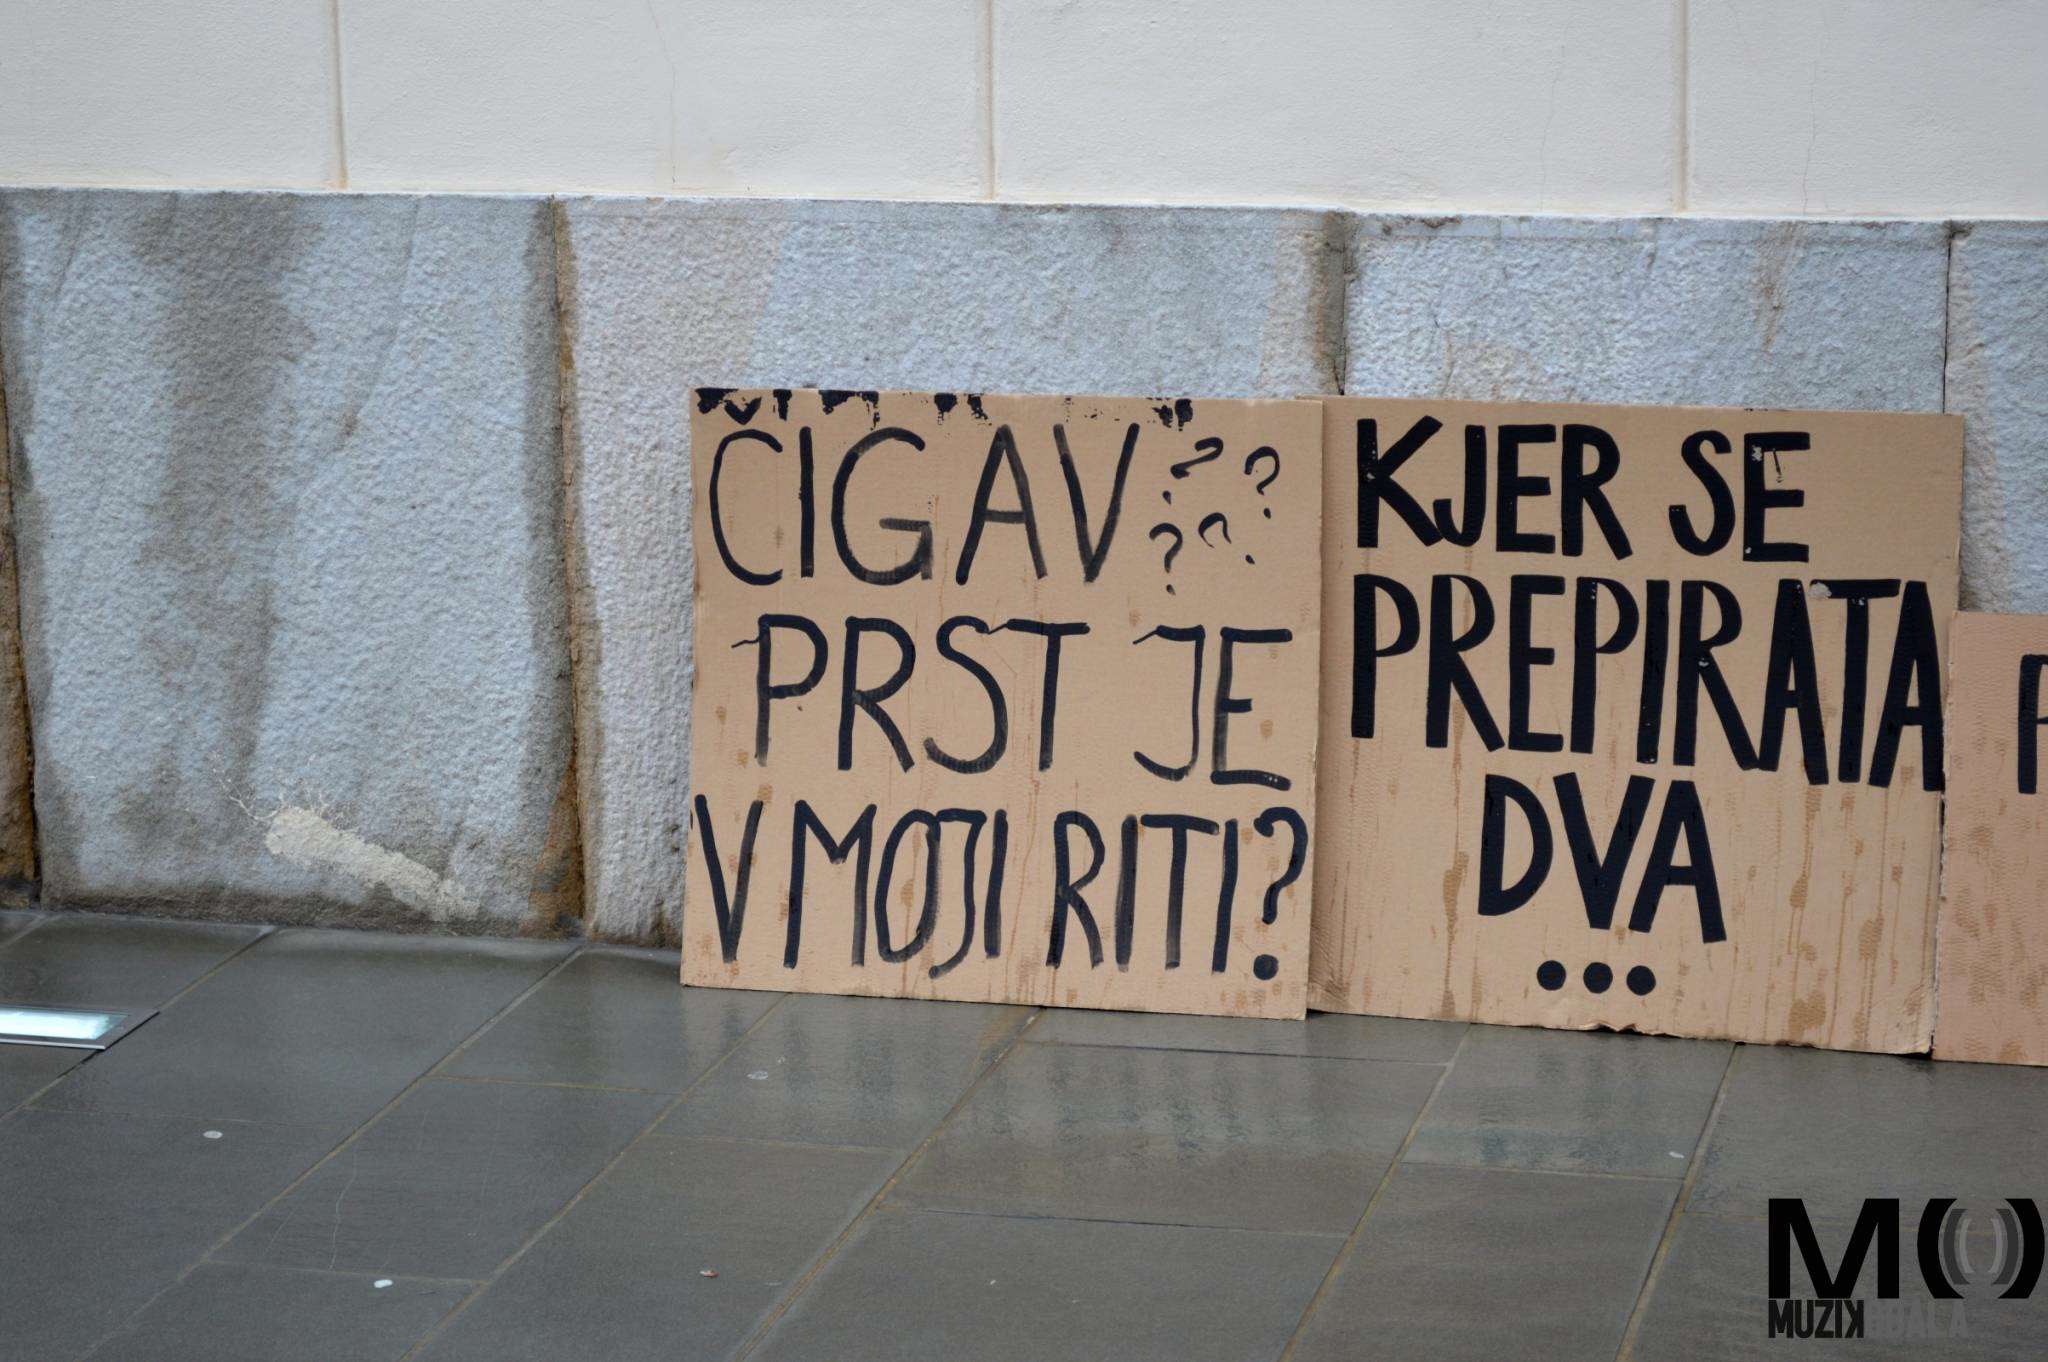 ČIGAV ????
PRST JE
V MOJI RITI?
KJER SE
PREPIRATA
DVA
...
MO
MUZIKOBALA